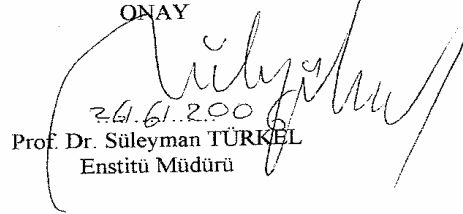 ONAY
26/6/2006
Prof. Dr. Süleyman TÜRKEL
Enstitü Müdürü